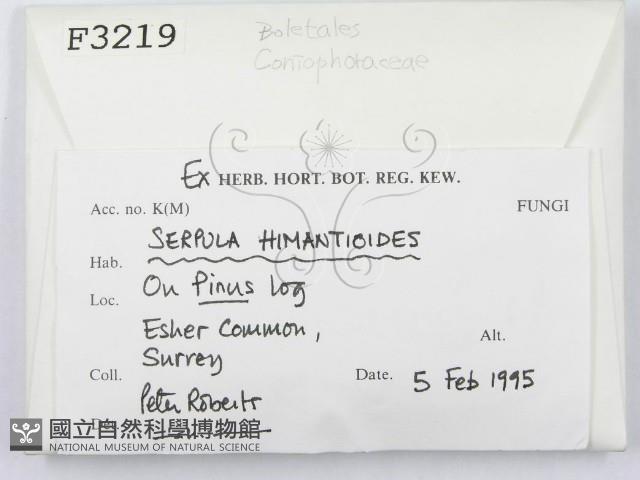 F3219
Boletales
Coniophoraceae
Ex HERB. HORT. BOT. REG. KEW.
Acc. no. K(M) FUNGI
SERPULA HIMANTIOIDES
Hab. On Pinus log
Loc. Esher Common, Surrey
Alt.
Coll. Peter Roberts
Date. 5 Feb 1995
國立自然科學博物館
NATIONAL MUSEUM OF NATURAL SCIENCE